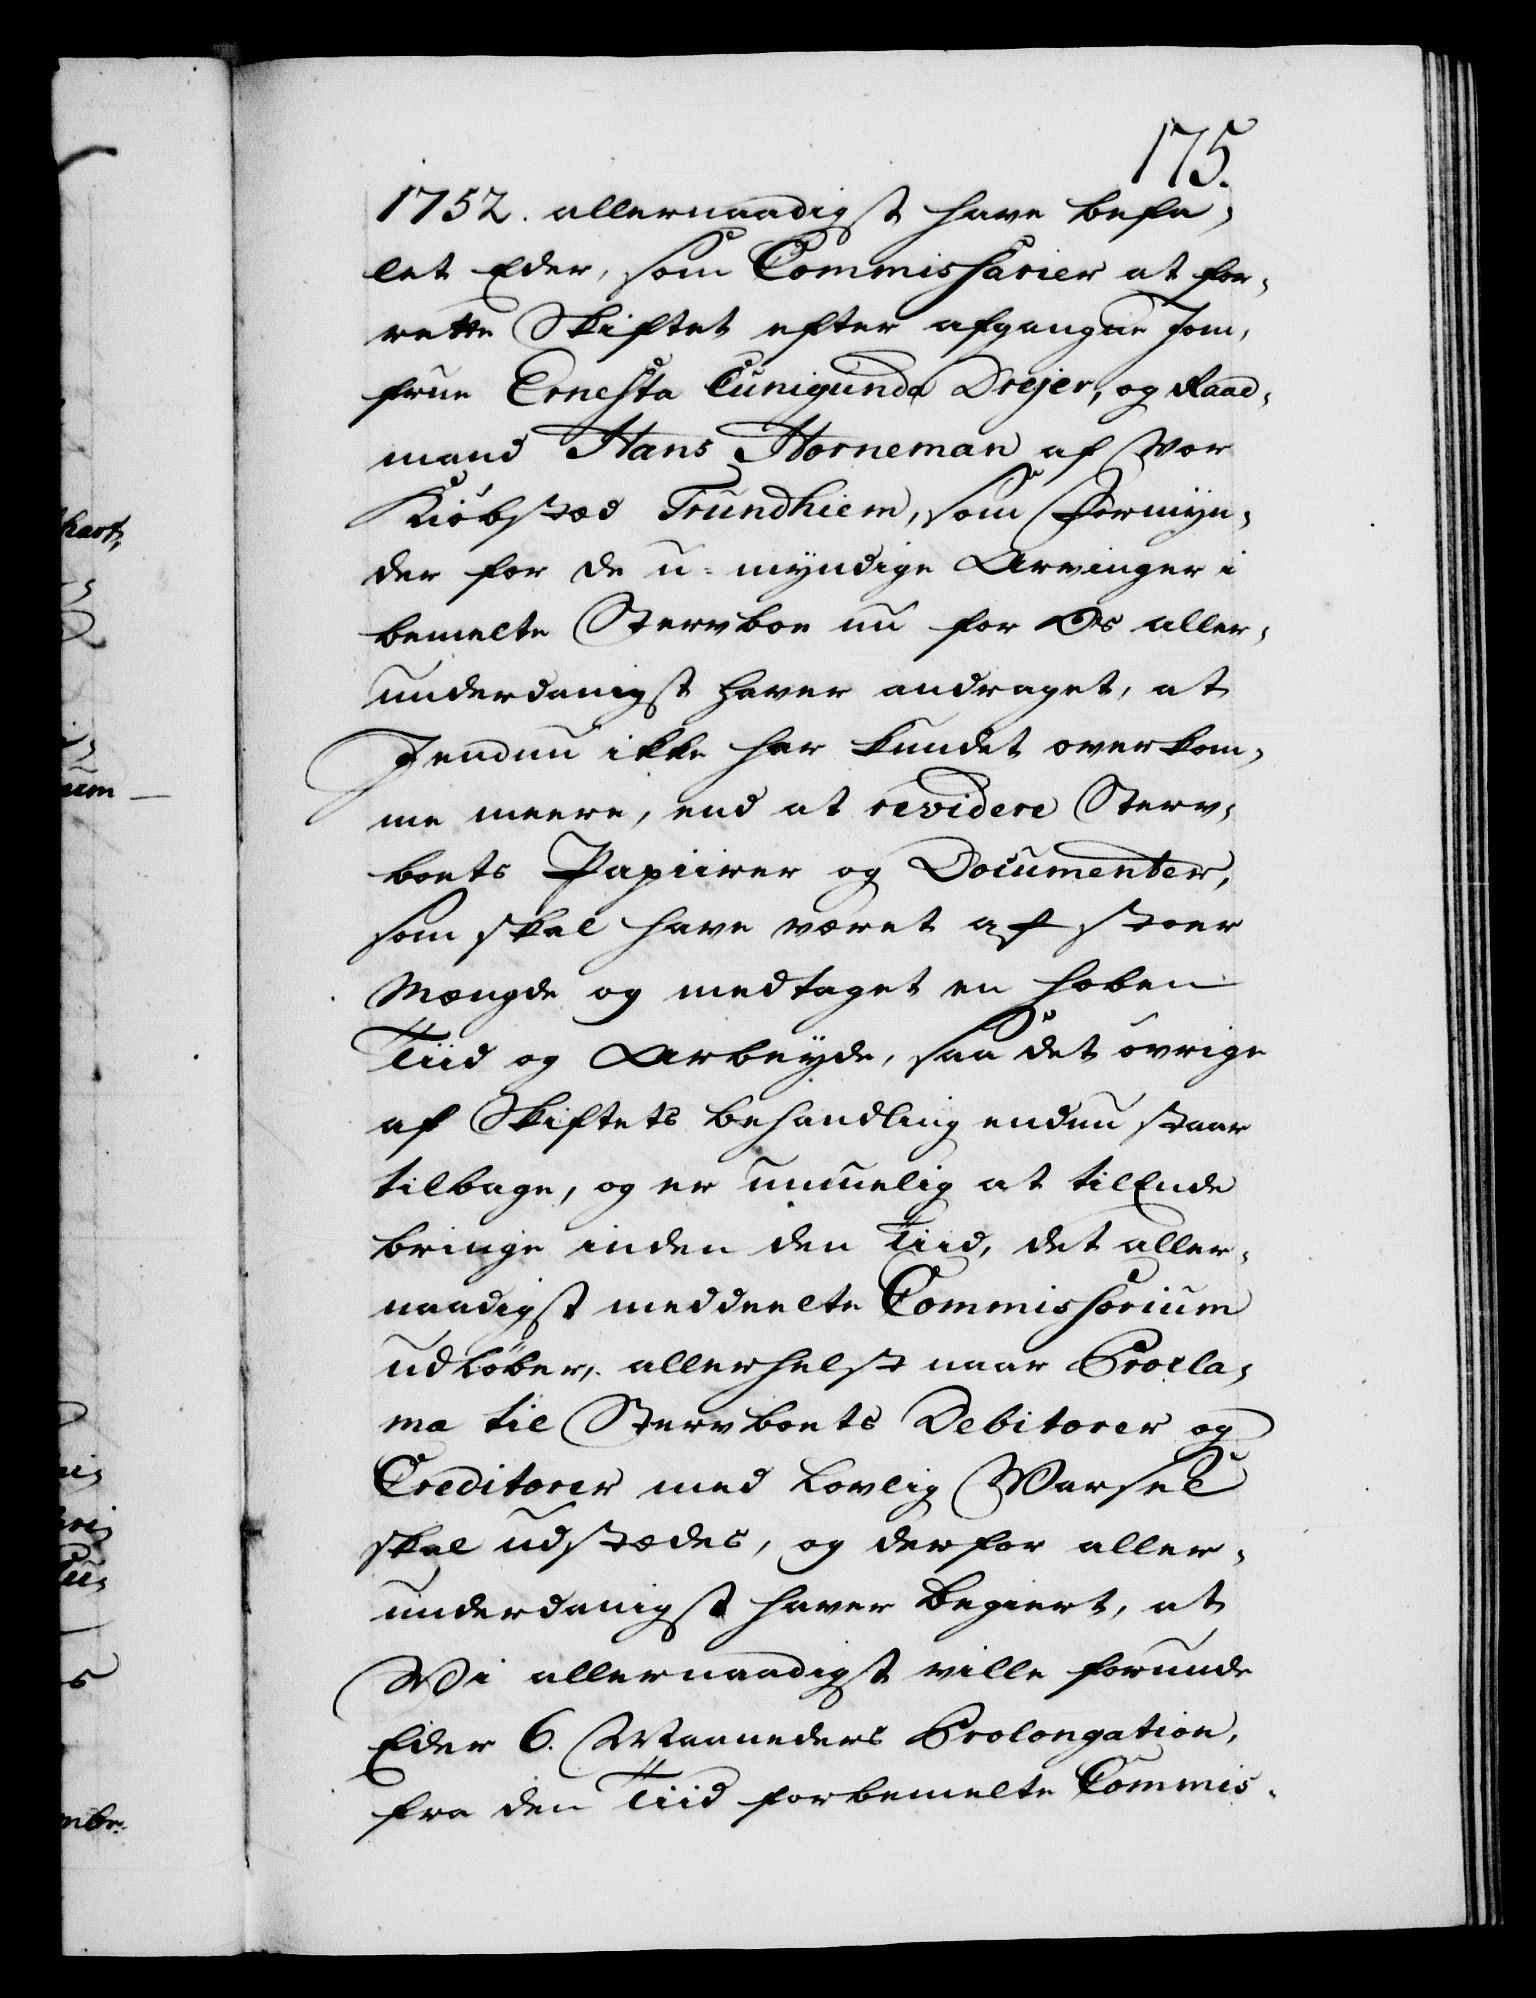 175.
1752. allernaadigst have befa,
let Eder, som Commissarier at for,
rette Skiftet efter afgangne Jom,
frue Ernesta Cunigunda Drejer, og Raad,
mand Hans Horneman af Vor
Kiöbstæd Trundhiem, som Formÿn,
der for de u-mÿndige Arvinger i
bemelte Stervboe nu for Os aller,
underdanigst haver andraget, at
I endnu ikke har kundet overkom,
me meere, end at revidere Sterv,
boets Papiirer og Documenter,
som skal have været af stoer
Mængde og medtaget en hoben
Tiid og Arbeÿde, saa det övrige
af Skiftets behandling endnu staar
tilbage, og er umuelig at tilEnde
bringe inden den Tiid, det aller,
naadigst meddeelte Commissorium
udlöber, allerhelst naar Procla,
ma til Stervboets Debitorer og
Creditorer med Lovlig Varsel
skal udstædes, og derfor aller,
underdanigst haver Begiert, at
Wi allernaadigst ville forunde
Eder 6. Maaneders Prolongation,
fra den Tiid forbemelte Commis,